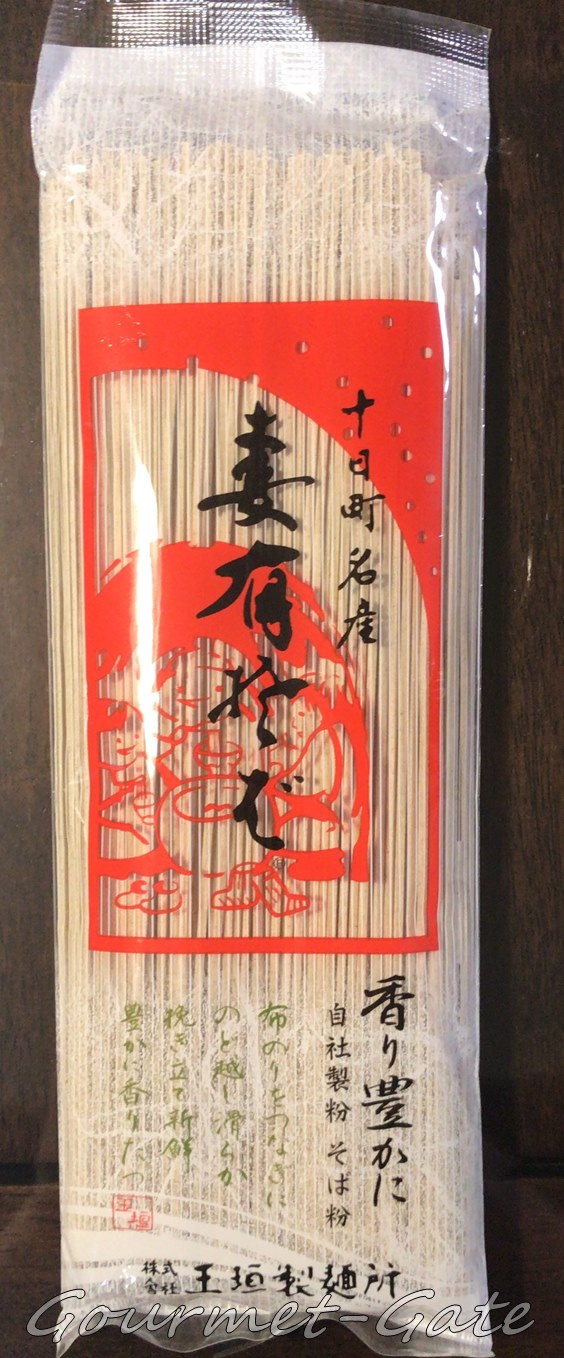 十日町名産
妻有そば
香り豊かに
自社製粉 そば粉
布のりをつなぎに
のど越し滑らか
挽き立て新鮮
豊かに香りたつ
玉垣
株式会社 玉垣製麺所
Gourmet-Gate